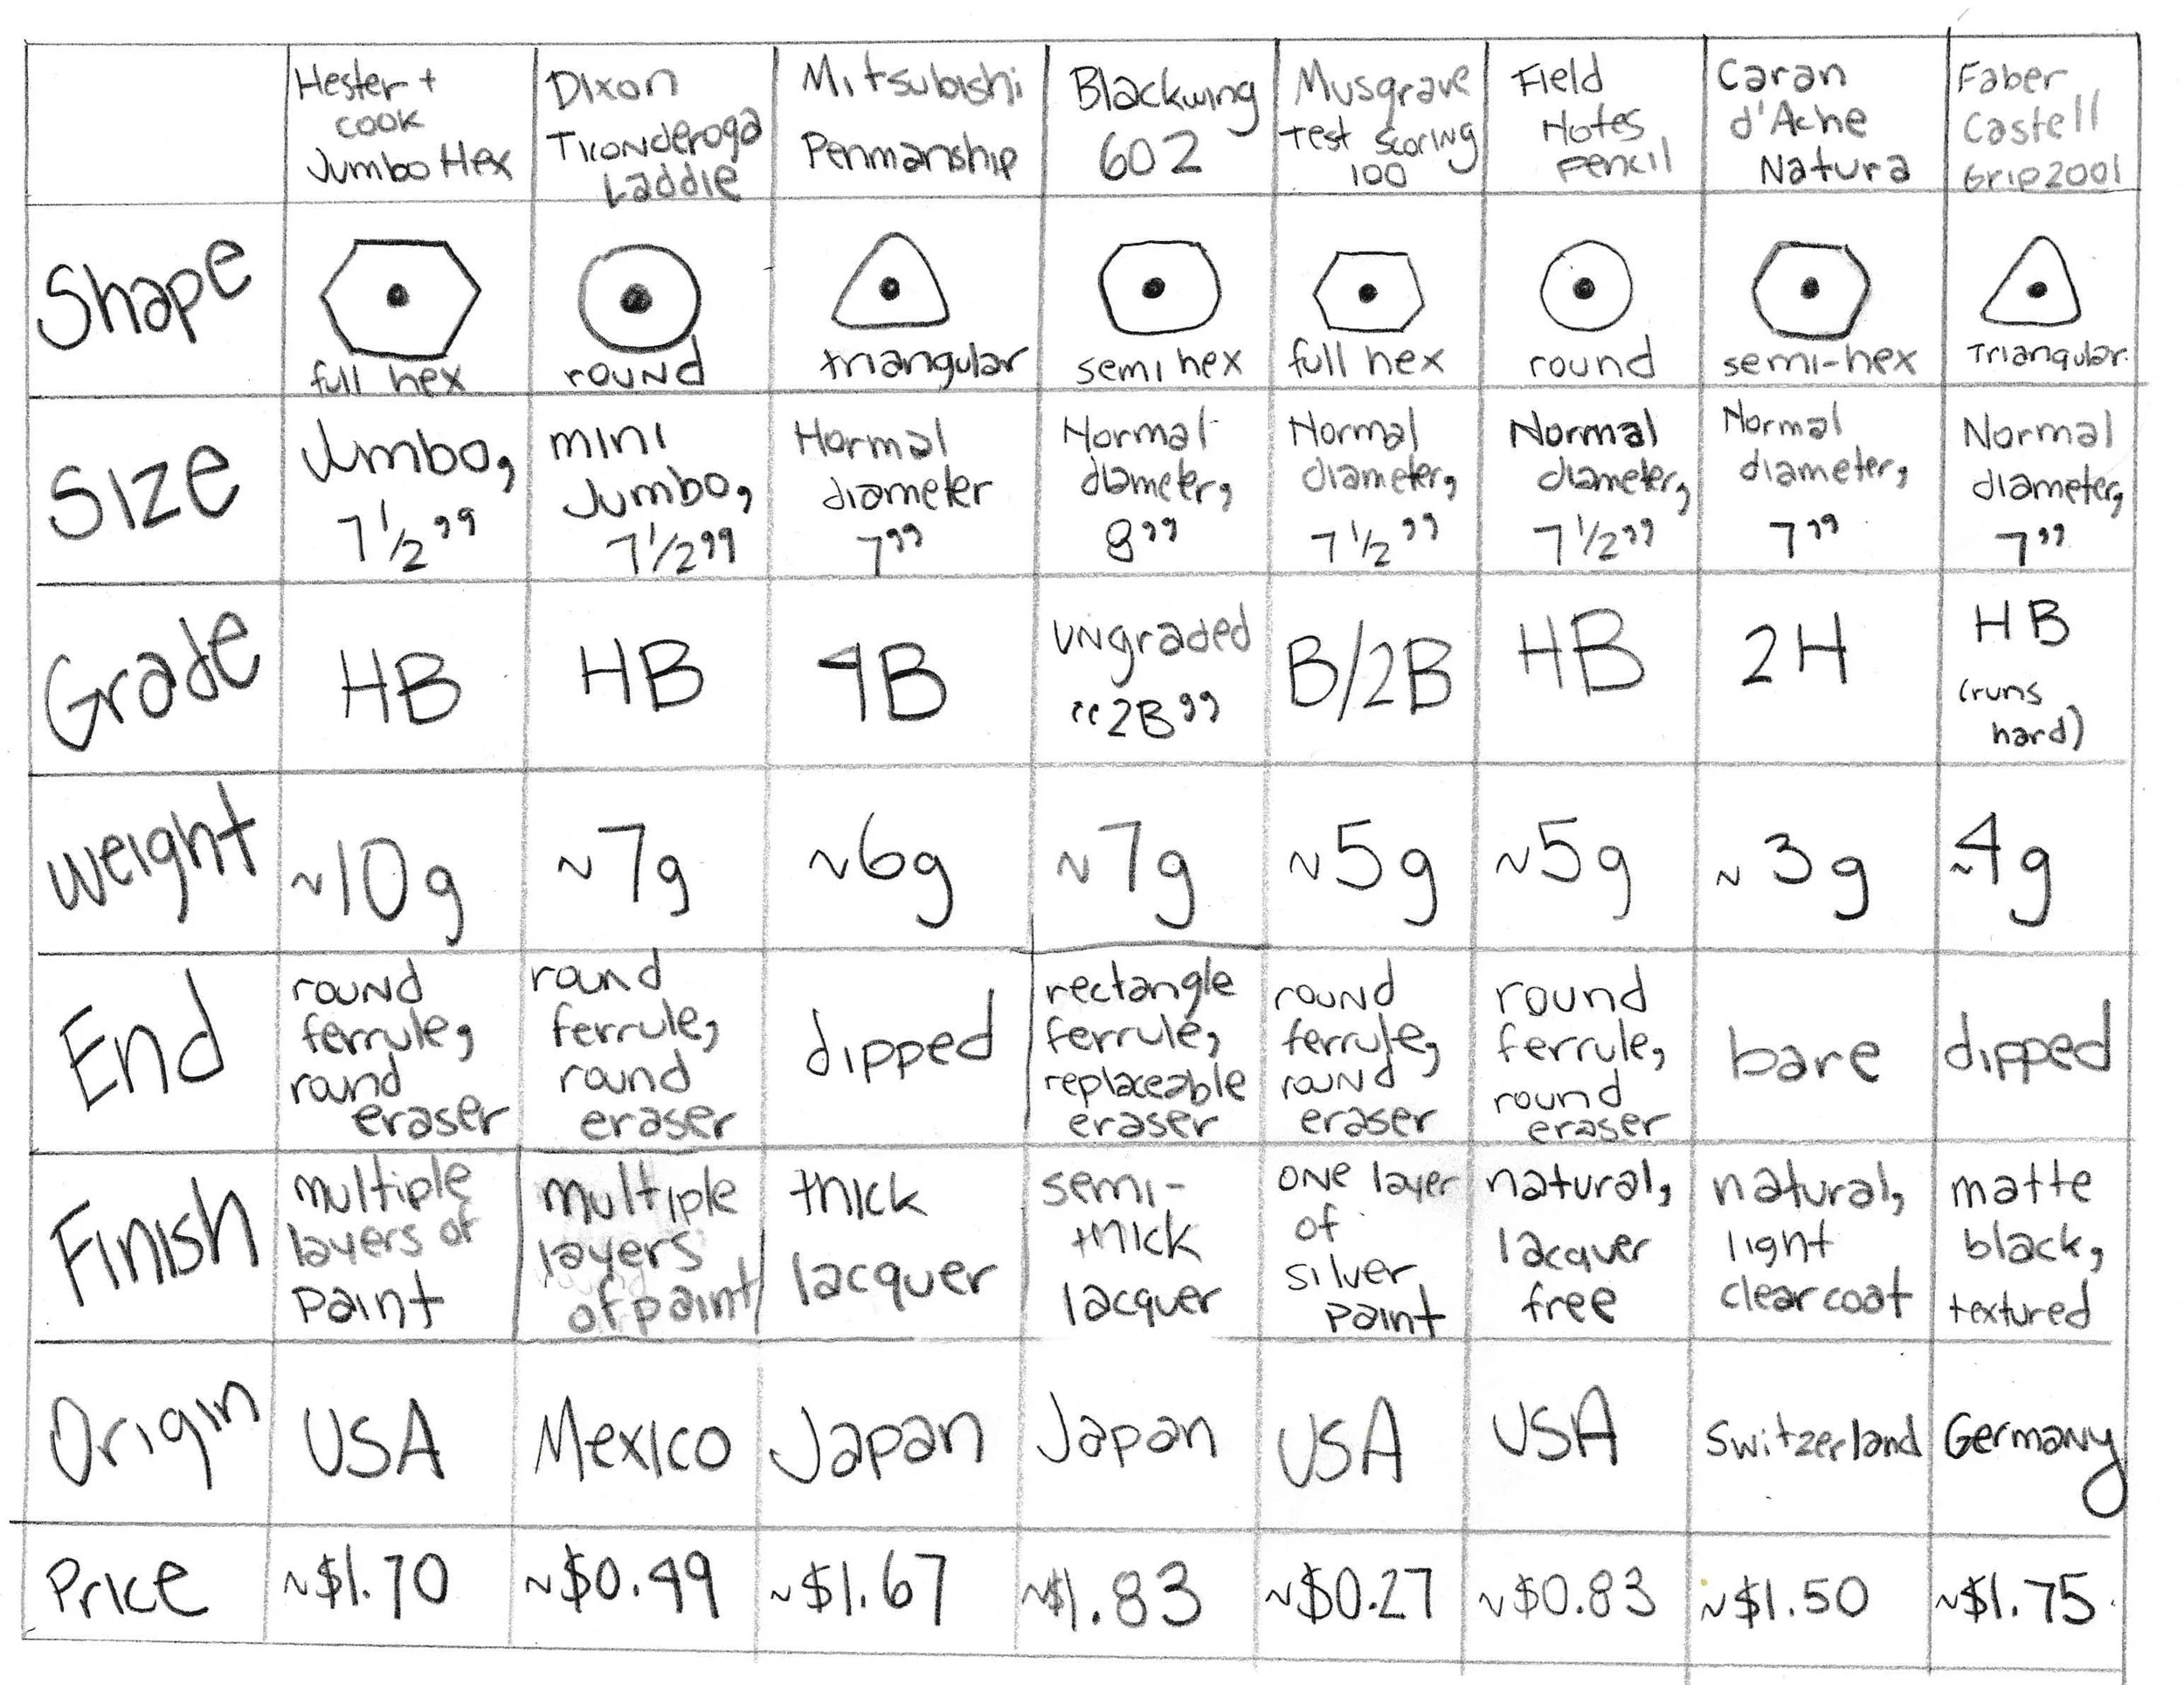 Hester +
cook
Jumbo Hex
Dixon
Ticonderoga
Laddie
Mitsubishi
Penmanship
Blackwing
602
Musgrave
Test Scoring
100
Field
Notes
Pencil
Caran
d'Ache
Natura
Faber
Castell
Grip 2001
Shape
full hex
round
triangular
semi hex
full hex
round
semi-hex
Triangular
Size
Jumbo,
7 1/2"
mini
Jumbo,
7 1/2"
Normal
diameter
7"
Normal
diameter,
8"
Normal
diameter,
7 1/2"
Normal
diameter,
7 1/2"
Normal
diameter,
7"
Normal
diameter,
7"
Grade
HB
HB
4B
ungraded
"2B"
B/2B
HB
2H
HB
(runs
hard)
weight
~10g
~7g
~6g
~7g
~5g
~5g
~3g
~4g
End
round
ferrule,
round
eraser
round
ferrule,
round
eraser
dipped
rectangle
ferrule,
replaceable
eraser
round
ferrule,
round
eraser
round
ferrule,
round
eraser
bare
dipped
Finish
multiple
layers of
paint
multiple
layers
of paint
thick
lacquer
semi-
thick
lacquer
one layer
of
silver
paint
natural,
lacquer
free
natural,
light
clear coat
matte
black,
textured
Origin
USA
Mexico
Japan
Japan
USA
USA
Switzerland
Germany
Price
~$1.70
~$0.49
~$1.67
~$1.83
~$0.27
~$0.83
~$1.50
~$1.75